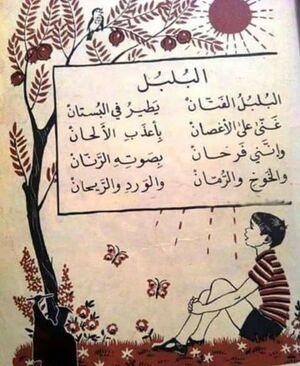 البُلبُل
البُلبُل الفَتّانْ يَطيرُ في البُستانْ
غَنّى على الأغصانْ بأعذَبِ الألحانْ
وانثنى فَرحَانْ بصَوتِهِ الرَّنّانْ
والخَوخِ والرُّمّانْ والوَردِ والرَّيحانْ